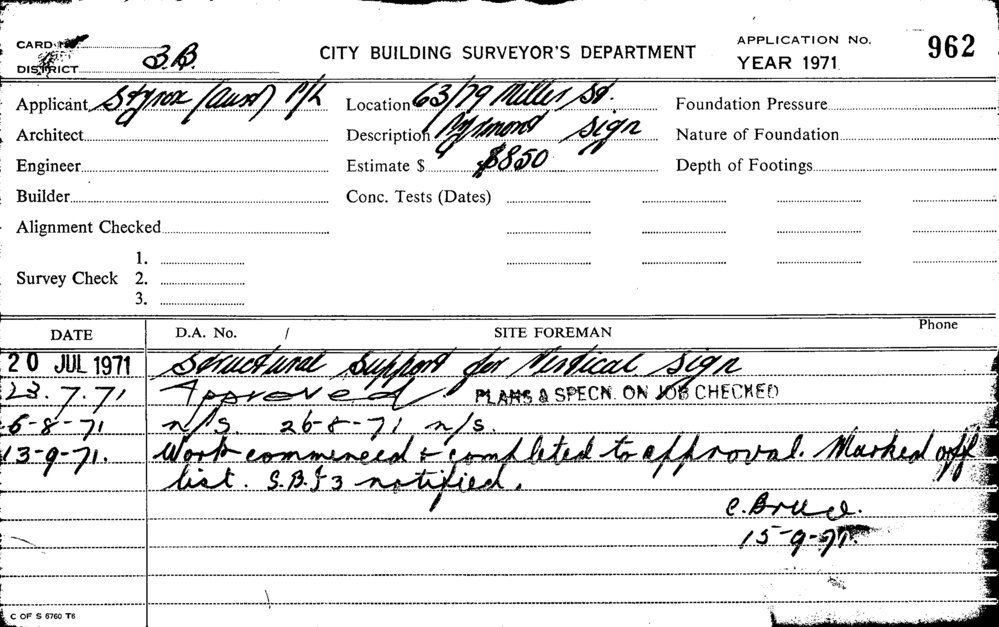 CARD No.
DISTRICT 3.B.
CITY BUILDING SURVEYOR'S DEPARTMENT
APPLICATION No. 962
YEAR 1971
Applicant Styrox (Aust) P/L
Location 63/79 Miller St.
Foundation Pressure
Architect
Description Pyrmont Sign
Nature of Foundation
Engineer
Estimate $ $850
Depth of Footings
Builder
Conc. Tests (Dates)
Alignment Checked
Survey Check 1.
2.
3.
DATE D.A. No. / SITE FOREMAN Phone
20 JUL 1971 Structural Support for Vertical Sign
23.7.71 Approved PLANS & SPECN. ON JOB CHECKED
6-8-71 n/s. 26-8-71 n/s.
13-9-71. Work commenced & completed to approval. Marked off
list. notified.
C. Bruce.
15-9-71.
C OF S 6760 T6